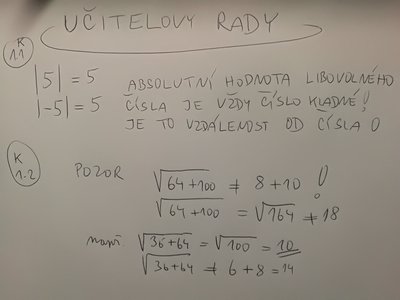 UČITELOVY RADY
K 1.1
|5| = 5
|-5| = 5
ABSOLUTNÍ HODNOTA LIBOVOLNÉHO
ČÍSLA JE VŽDY ČÍSLO KLADNÉ!
JE TO VZDÁLENOST OD ČÍSLA 0
K 1.2
POZOR √64+100 ≠ 8+10 !
√64+100 = √164 ≠ 18
např. √36+64 = √100 = 10
√36+64 ≠ 6+8 = 14